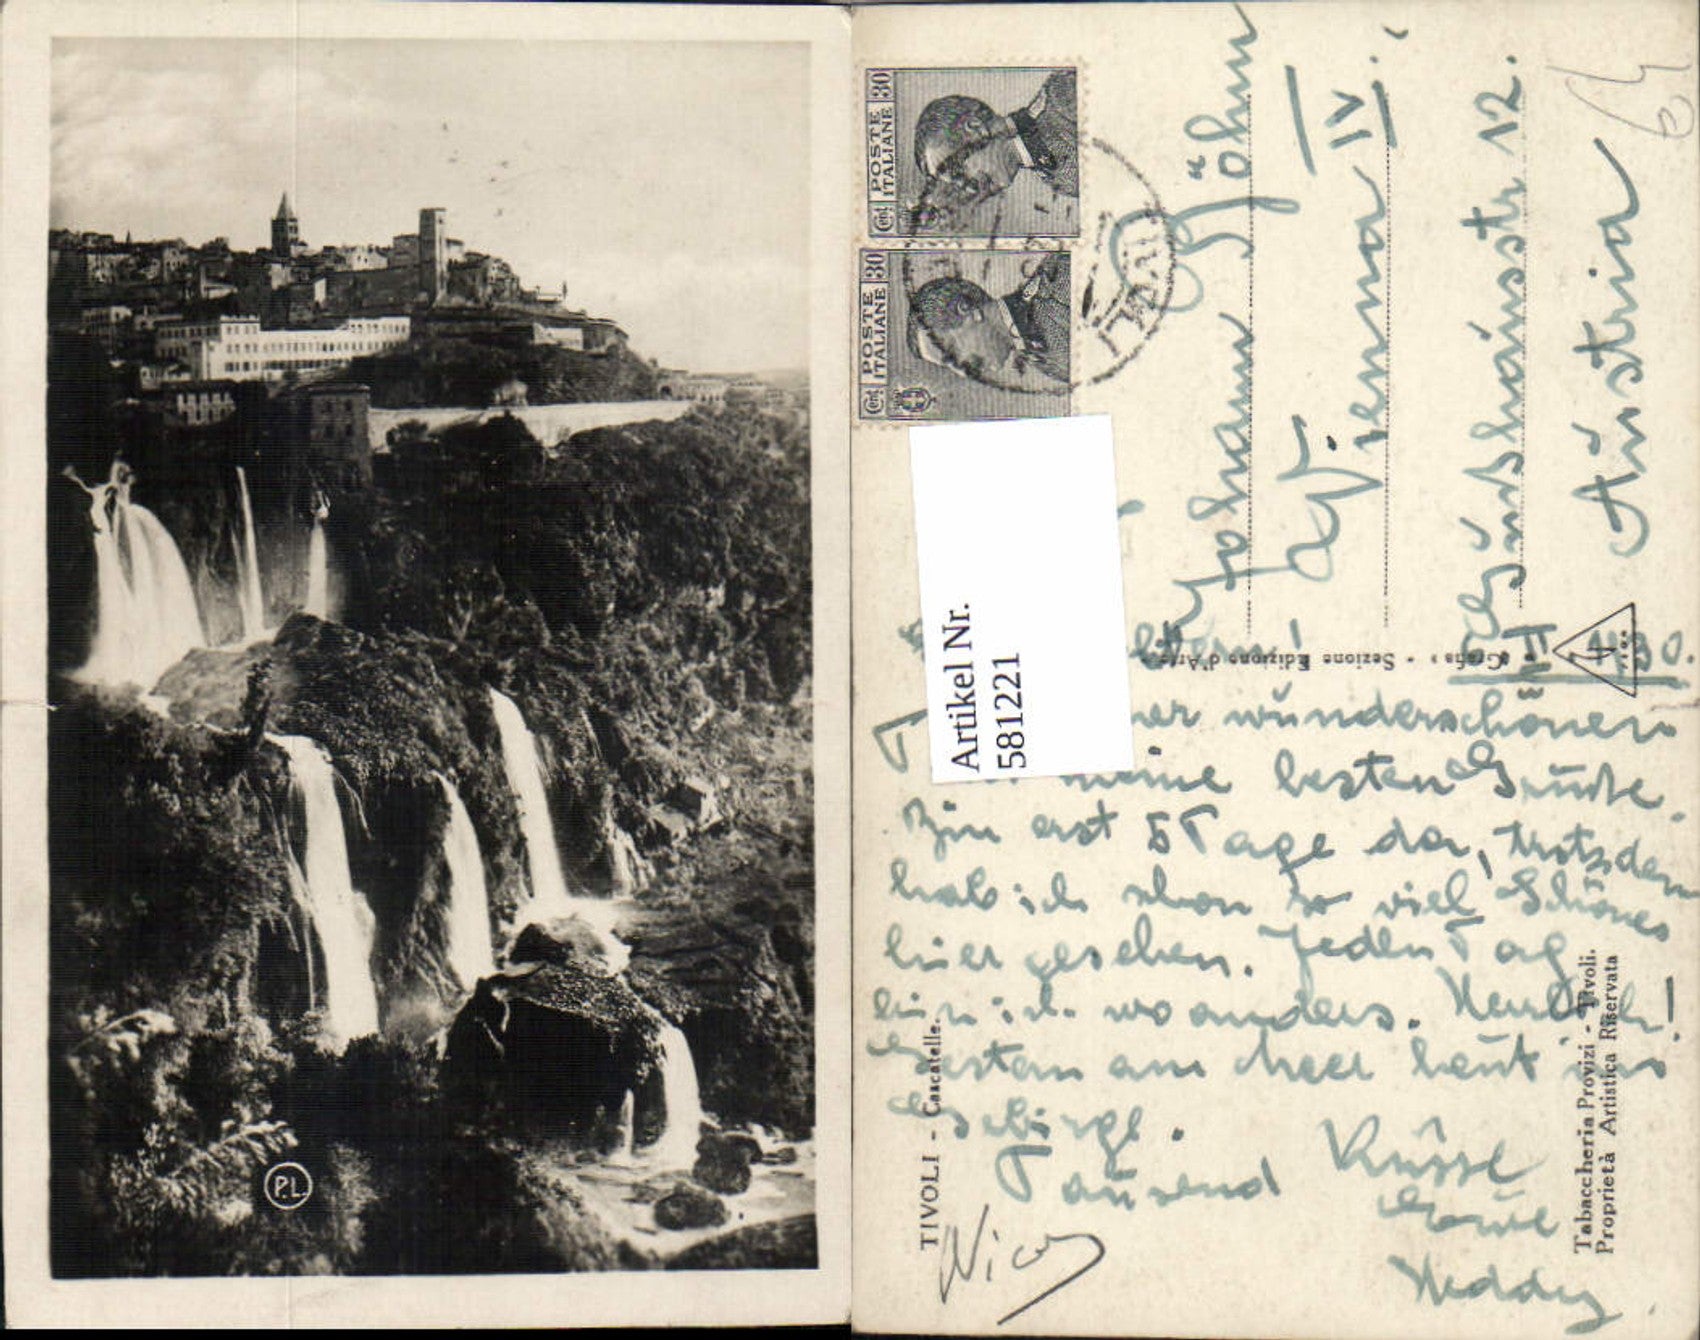 P.L.
POSTE ITALIANE 30
Cent
POSTE ITALIANE 30
Cent
TIVOLI
Artikel Nr.
5812221
Johann Böhm
Wien IV.
12.
Austria
« Grafia » - Sezione Edizione d'Arte
30.
wunderschönen
meine besten Grüße.
Bin erst 5 Tage da, trotzdem
hab ich schon so viel Schönes
hier gesehen. Jeden Tag
bin ich wo anders. Herrlich!
Gestern am Meer heut ins
Gebirge.
Tausend Küsse
Eure
Heddy
TIVOLI - Cascatelle.
Tabaccheria Provizi - Tivoli.
Proprietà Artistica Riservata